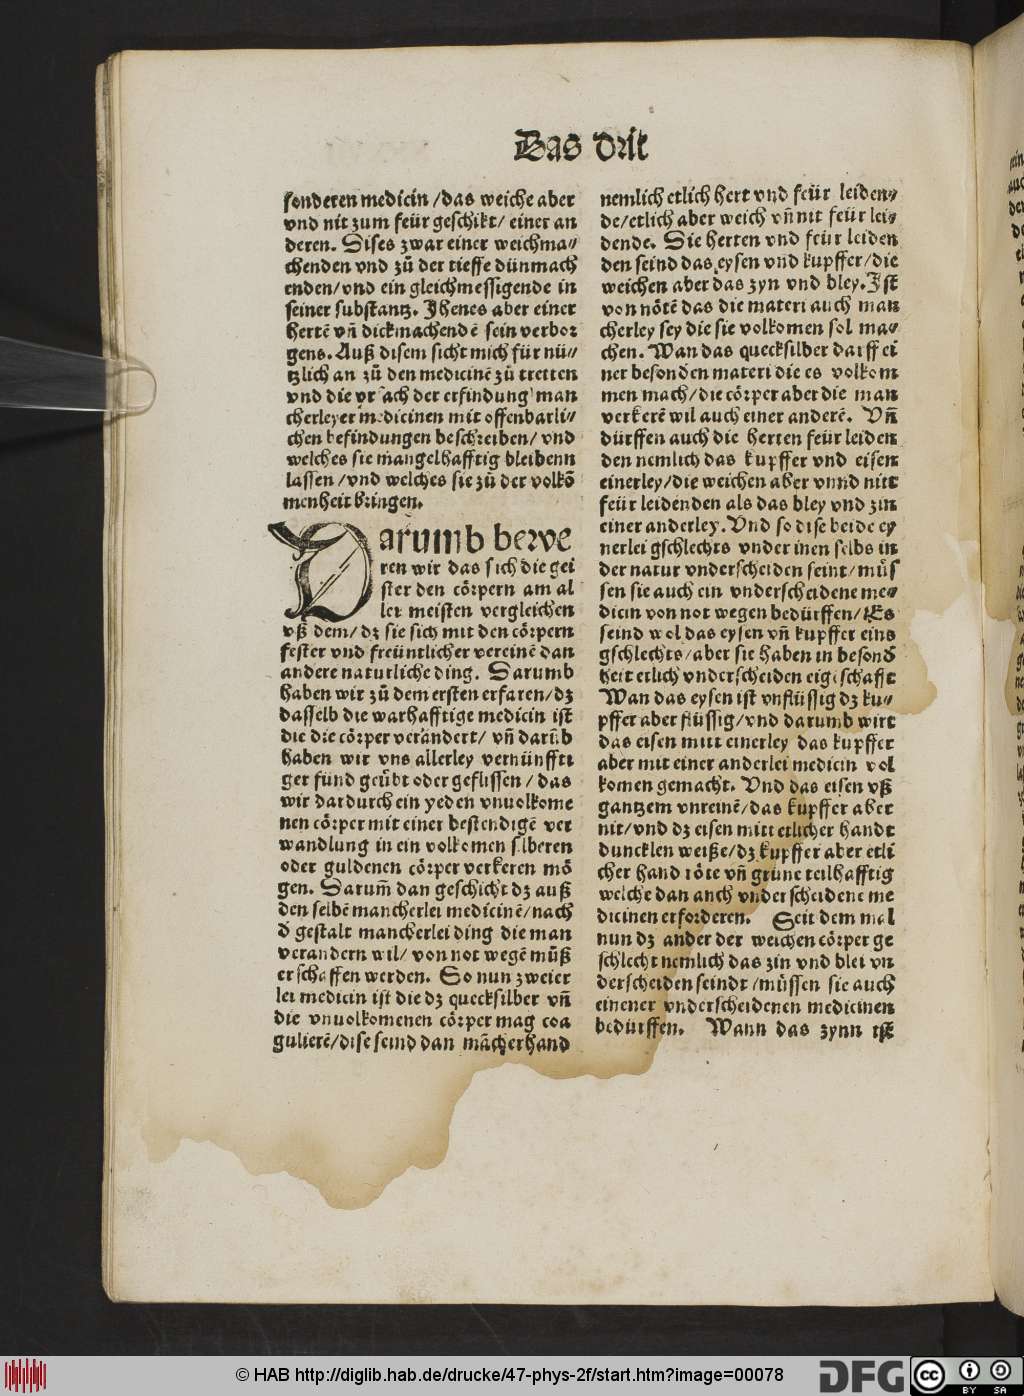 Das drit
sonderen medicin/das weiche aber
vnd nit zum feür geschikt/ einer an
deren. Dises zwar einer weichma⸗
chenden vnd zů der tieffe dünmach
enden/vnd ein gleichmessigende in
seiner substantz. Jhenes aber einer
hertē vñ dickmachendē sein verbor
gens. Auß disem sicht mich für nü⸗
tzlich an zů den medicinē zů tretten
vnd die vrsach der erfindung man
cherleyer medicinen mit offenbarli⸗
chen befindungen beschreiben/ vnd
welches sie mangelhafftig bleibenn
lassen/vnd welches sie zů der volkō
menheit bringen.
Darumb bewe
ren wir das sich die gei
ster den cörpern am al
ler meisten vergleichen
vß dem/ dz sie sich mit den cörpern
fester vnd freüntlicher vereinē dan
andere naturliche ding. Darumb
haben wir zů dem ersten erfaren/dz
dasselb die warhafftige medicin ist
die die cörper verändert/ vñ darūb
haben wir vns allerley vernünffti
ger fünd geübt oder geflissen/ das
wir dardurch ein yeden vnuolkome
nen cörper mit einer bestendigē ver
wandlung in ein volkomen silberen
oder guldenen cörper verkeren mö
gen. Darum̄ dan geschicht dz auß
den selbē mancherlei medicinē/nach
d̄ gestalt mancherlei ding die man
verandern wil/ von not wegē můß
erschaffen werden. So nun zweier
lei medicin ist die dz quecksilber vñ
die vnuolkomenen cörper mag coa
gulierē/dise seind dan mācherhand
nemlich etlich hert vnd feür leiden⸗
de/etlich aber weich vñ nit feür lei⸗
dende. Die herten vnd feür leiden
den seind das eysen vnd kupffer/die
weichen aber das zyn vnd bley. Jst
von nötē das die materi auch man
cherley sey die sie volkomen sol ma⸗
chen. Wan das quecksilber darff ei
ner besonden materi die es volkom
men mach/die cörper aber die man
verkerē wil auch einer anderē. Vñ
dürffen auch die herten feür leiden
den nemlich das kupffer vnd eisen
einerley/die weichen aber vnnd nitt
feür leidenden als das bley vnd zin
einer anderley. Vnd so dise beide ey
nerlei gschlechts vnder inen selbs in
der natur vnderscheiden seint/ můs
sen sie auch ein vnderscheidene me⸗
dicin von not wegen bedürffen/ Es
seind wol das eysen vñ kupffer eins
gschlechts/aber sie haben in besond̄
heit etlich vnderscheiden eigeschafft
Wan das eysen ist vnflüssig dz ku⸗
pffer aber flüssig/vnd darumb wirt
das eisen mitt einerley das kupffer
aber mit einer anderlei medicin vol
komen gemacht. Vnd das eisen vß
gantzem vnreinē/das kupffer aber
nit/vnd dz eisen mitt etlicher handt
duncklen weiße/dz kupffer aber etli
cher hand röte vñ grüne teilhafftig
welche dan auch vnderscheidene me
dicinen erforderen. Seit dem mal
nun dz ander der weichen cörper ge
schlecht nemlich das zin vnd blei vn
derscheiden seindt/müssen sie auch
einener vnderscheidenen medicinen
bedürffen. Wann das zynn ist
© HAB http://diglib.hab.de/drucke/47-phys-2f/start.htm?image=00078
DFG
cc
BY SA